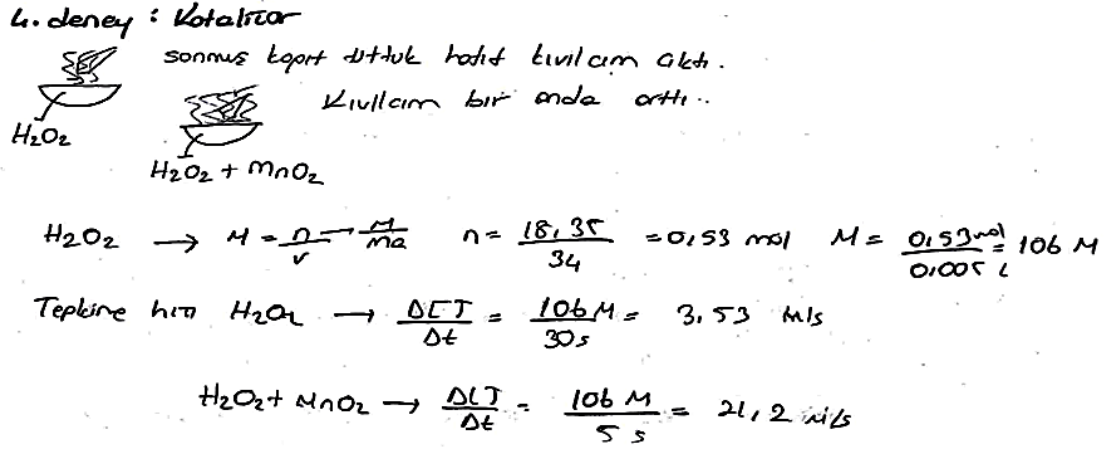 4. deney : Katalizör
sönmüş kibrit tuttuk hafif kıvılcım çıktı.
Kıvılcım bir anda arttı..
H₂O₂
H₂O₂ + MnO₂
H₂O₂ → M = n/v → M/Ma n = 18,35/34 = 0,53 mol M = 0,53 mol/0,005 L = 106 M
Tepkime hızı H₂O₂ → Δ[]/Δt = 106 M/30 s = 3,53 M/s
H₂O₂ + MnO₂ → Δ[]/Δt = 106 M/5 s = 21,2 M/s